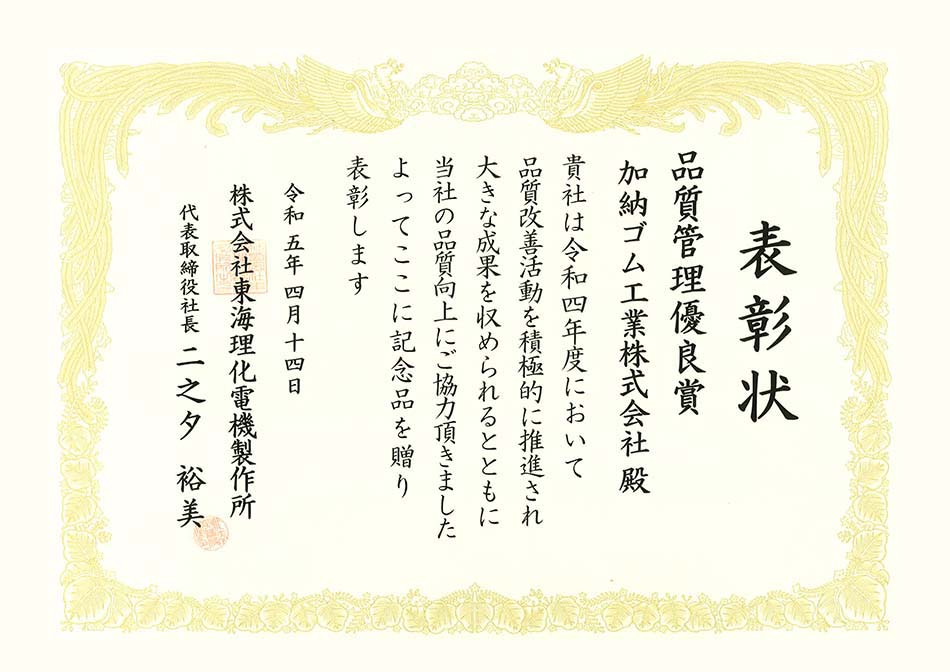 表彰状
品質管理優良賞
加納ゴム工業株式会社 殿
貴社は令和四年度において
品質改善活動を積極的に推進され
大きな成果を収められるとともに
当社の品質向上にご協力頂きました
よってここに記念品を贈り
表彰します
令和五年四月十四日
株式会社東海理化電機製作所
代表取締役社長 二之夕 裕美